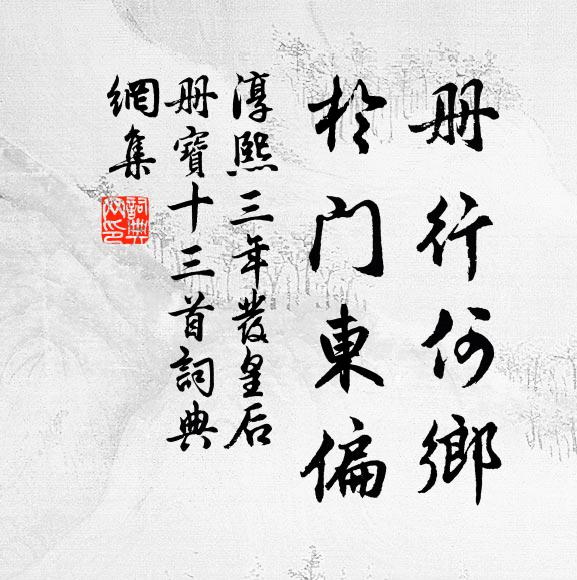 册行何鄉
於門東偏
淳熙三年發皇后
册寶十三首詞典
網集
詞典網印